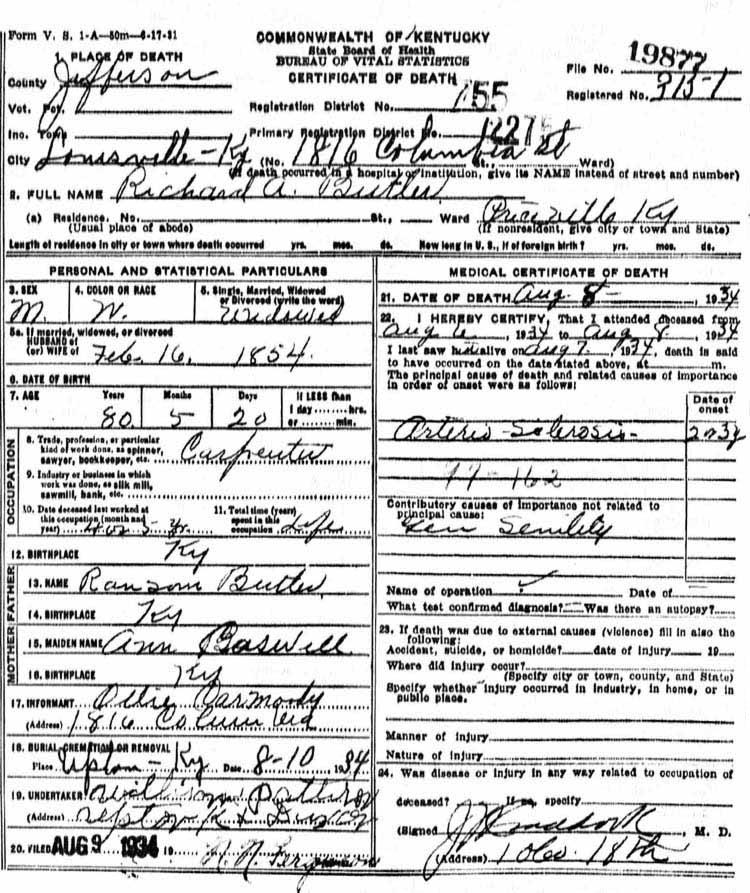 Form V. S. 1-A—50m—6-17-31
COMMONWEALTH OF KENTUCKY
State Board of Health
BUREAU OF VITAL STATISTICS
CERTIFICATE OF DEATH
File No. 19877
Registered No.
1. PLACE OF DEATH
County Jefferson
Vot. Pct.
Inc. Town
Registration District No. 755
Primary Registration District No.
City Louisville - Ky (No. 1816 Columbia St St., Ward)
(If death occurred in a hospital or institution, give its NAME instead of street and number)
2. FULL NAME Richard A. Butler
(a) Residence. No. St., Ward Priceville Ky
(Usual place of abode) (If nonresident, give city or town and State)
Length of residence in city or town where death occurred yrs. mos. ds. How long in U. S., if of foreign birth? yrs. mos. ds.
PERSONAL AND STATISTICAL PARTICULARS
3. SEX 4. COLOR OR RACE 5. Single, Married, Widowed
or Divorced (write the word)
M. W. Widowed
5a. If married, widowed, or divorced
HUSBAND of
(or) WIFE of Feb. 16, 1854.
6. DATE OF BIRTH
7. AGE Years Months Days If LESS than
1 day ........ hrs.
or ........ min.
80 5 20
OCCUPATION
8. Trade, profession, or particular
kind of work done, as spinner,
sawyer, bookkeeper, etc. Carpenter
9. Industry or business in which
work was done, as silk mill,
sawmill, bank, etc.
10. Date deceased last worked at
this occupation (month and
year)
11. Total time (years)
spent in this
occupation Life
12. BIRTHPLACE Ky
FATHER
13. NAME Ransom Butler
14. BIRTHPLACE Ky
MOTHER
15. MAIDEN NAME Ann Boswell
16. BIRTHPLACE Ky
17. INFORMANT Ollie Carmody
(Address) 1816 Columbia
18. BURIAL, CREMATION OR REMOVAL
Place Upton - Ky Date 8-10 1934
19. UNDERTAKER William
(Address) Upton Ky
20. FILED AUG 9 1934 19
MEDICAL CERTIFICATE OF DEATH
21. DATE OF DEATH Aug. 8 - , 1934
22. I HEREBY CERTIFY, That I attended deceased from
Aug 6, 1934 to Aug 8, 1934
I last saw him alive on Aug 7, 1934, death is said
to have occurred on the date stated above, at m.
The principal cause of death and related causes of importance
in order of onset were as follows:
Date of
onset
Arterio-Sclerosis
97-162
Contributory causes of importance not related to
principal cause:
Gen Senility
Name of operation Date of
What test confirmed diagnosis? Was there an autopsy?
23. If death was due to external causes (violence) fill in also the
following:
Accident, suicide, or homicide? date of injury 19
Where did injury occur?
(Specify city or town, county, and State)
Specify whether injury occurred in industry, in home, or in
public place.
Manner of injury
Nature of injury
24. Was disease or injury in any way related to occupation of
deceased? If so, specify
(Signed) M. D.
(Address) 18th